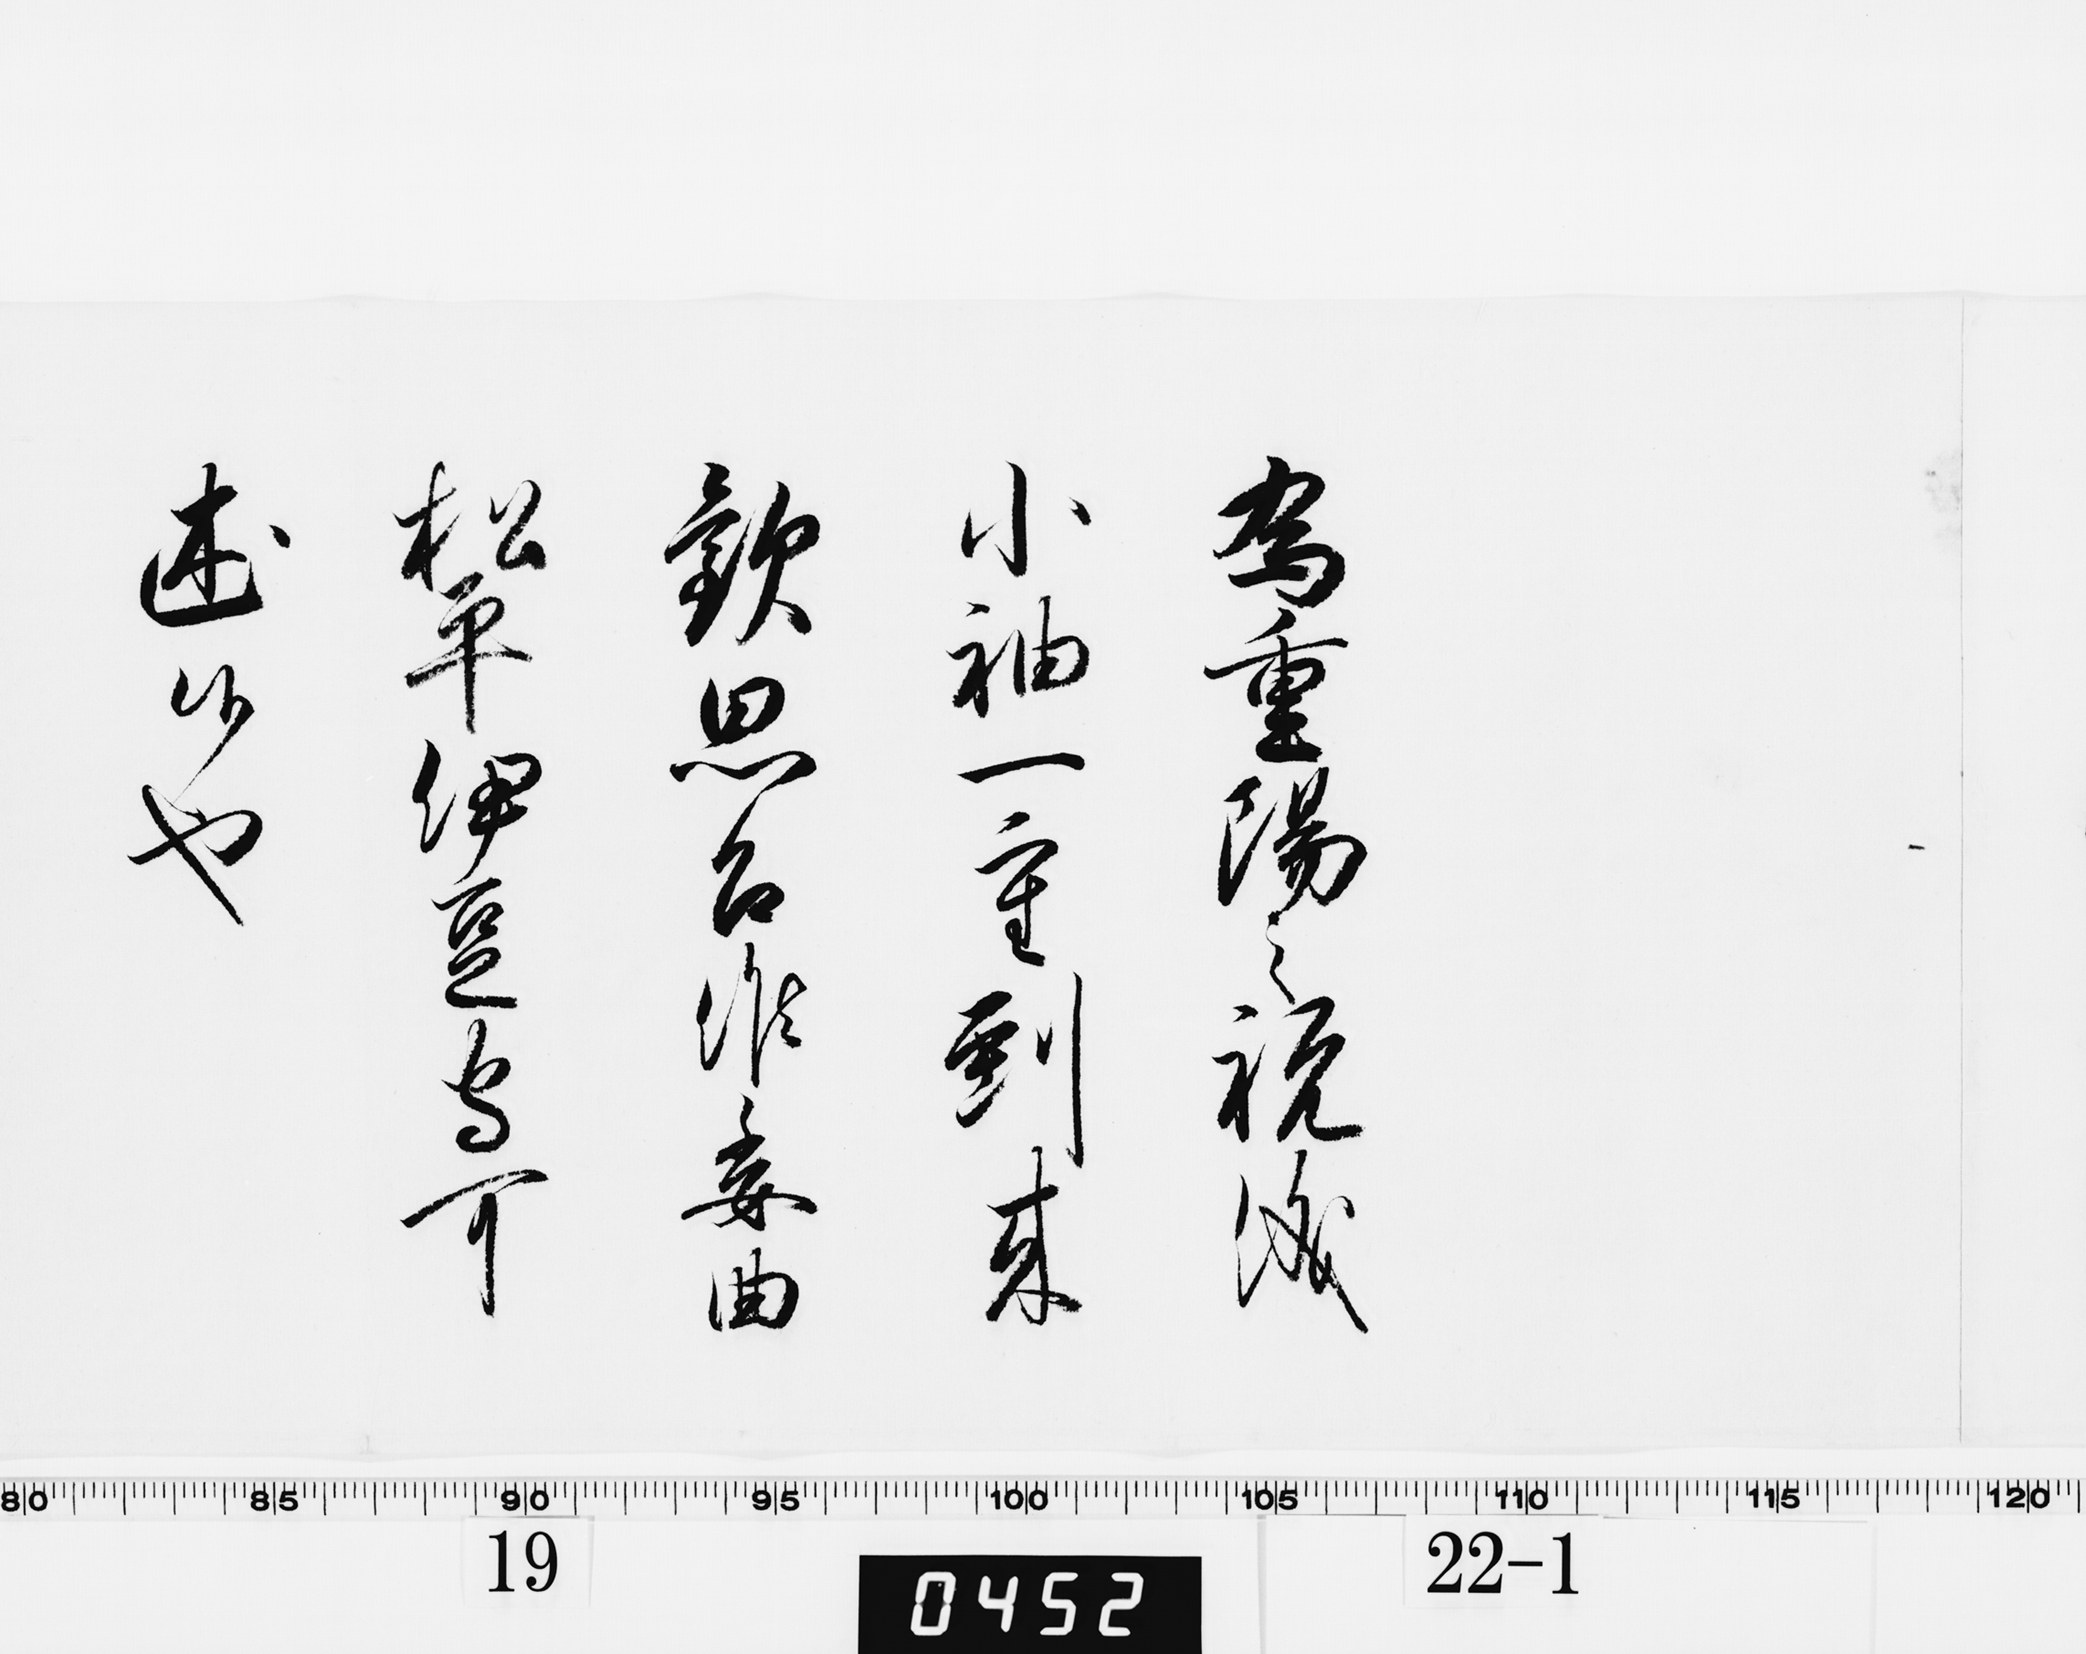 為重陽之祝儀
小袖一重到来
歓思召候委曲
松平伊豆守可
述候也
80 85 90 95 100 105 110 115 120
19
0452
22-1